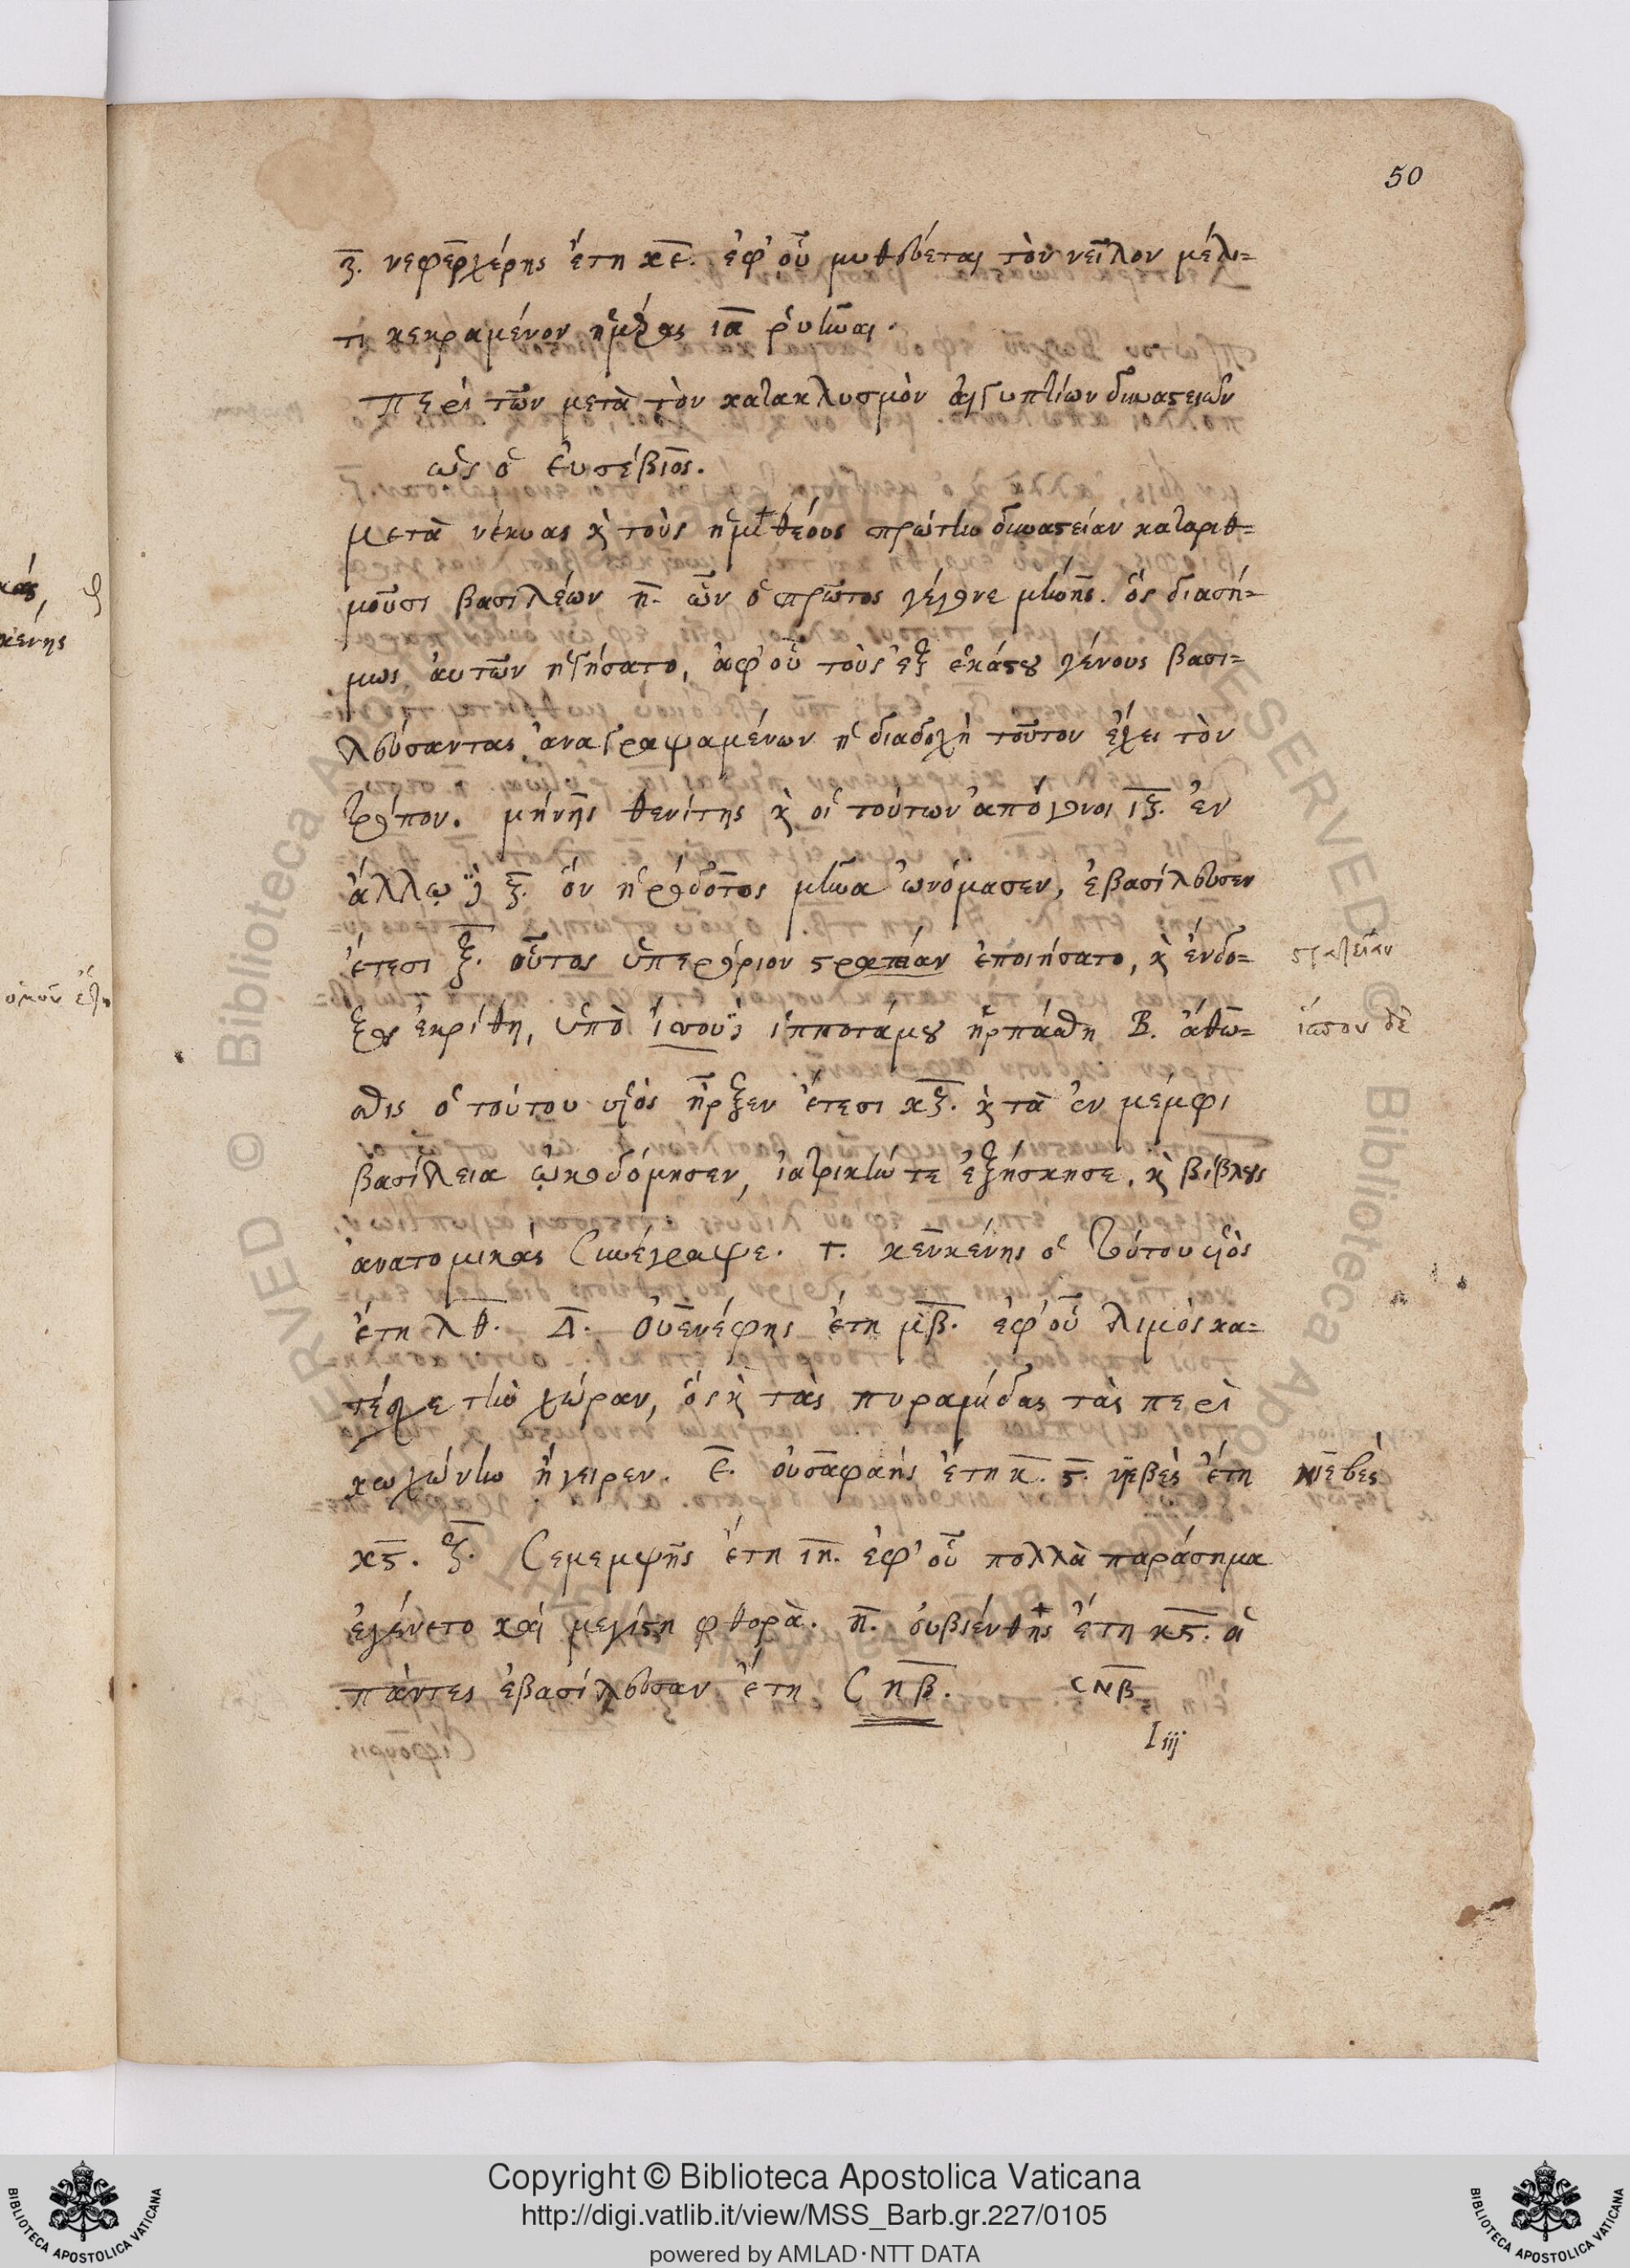 50
ζ. νεφερχέρης ἔτη κε. ἐφ' οὗ μυθεύεται τὸν νεῖλον μέλι=
τι κεκραμένον ἡμέρας ια ῥυῆναι.
Περὶ τῶν μετὰ τὸν κατακλυσμὸν αἰγυπτίων δυναστειῶν
ὡς ὁ ἐυσέβιος.
μετὰ νέκυας ϗ τοὺς ἡμιθέους πρώτην δυναστείαν καταριθ=
μοῦσι βασιλέων η. ὧν ὁ πρῶτος γέγονε μήνης. ὃς διασή=
μως ἀυτῶν ἡγήσατο, ἀφ' οὗ τοὺς ἐξ ἑκάστου γένους βασι=
λεύσαντας ἀναγραψαμένων ἡ διαδοχὴ τοῦτον ἔχει τὸν
τρόπον. μήνης θενίτης ϗ οἱ τούτων ἀπόγονοι ιζ. ἐν
ἄλλῳ ζ. ὃν ἡρόδοτος μῆνα ὠνόμασεν, ἐβασίλευσεν
ἔτεσι ξ. οὗτος ὑπερόριον στρατείαν ἐποιήσατο, ϗ ἔνδο=
στρατείαν
ξος ἐκρίθη, ὑπὸ ἱπποτάμου ἡρπάσθη Β. ἄθω=
θις ὁ τούτου υἱὸς ἦρξεν ἔτεσι κζ. ϗ τὰ ἐν μέμφι
βασίλεια ᾠκοδόμησεν, ἰατρικήν τε ἐξήσκησε, ϗ βίβλους
ἀνατομικὰς συνέγραψε. Γ. κενκένης ὁ τούτου υἱὸς
ἔτη λθ. Δ. Οὐενέφης ἔτη μβ. ἐφ' οὗ λιμὸς κα=
τέσχε τὴν χώραν, ὃς ϗ τὰς πυραμίδας τὰς περὶ
κωχώνην ἤγειρεν. ε. οὐσαφαής ἔτη κ. ς. νιεβὲς ἔτη
νιεβές
κς. ζ. Σεμεμψης ἔτη ιη. ἐφ' οὗ πολλὰ παράσημα
ἐγένετο καὶ μεγίστη φθορὰ. η. ὀυβιένθης ἔτη κς. οἱ
πάντες ἐβασίλευσαν ἔτη Ϲ Ν Β. ϹΝΒ
I iij
Copyright © Biblioteca Apostolica Vaticana
http://digi.vatlib.it/view/MSS_Barb.gr.227/0105
powered by AMLAD·NTT DATA
BIBLIOTECA APOSTOLICA VATICANA
BIBLIOTECA APOSTOLICA VATICANA